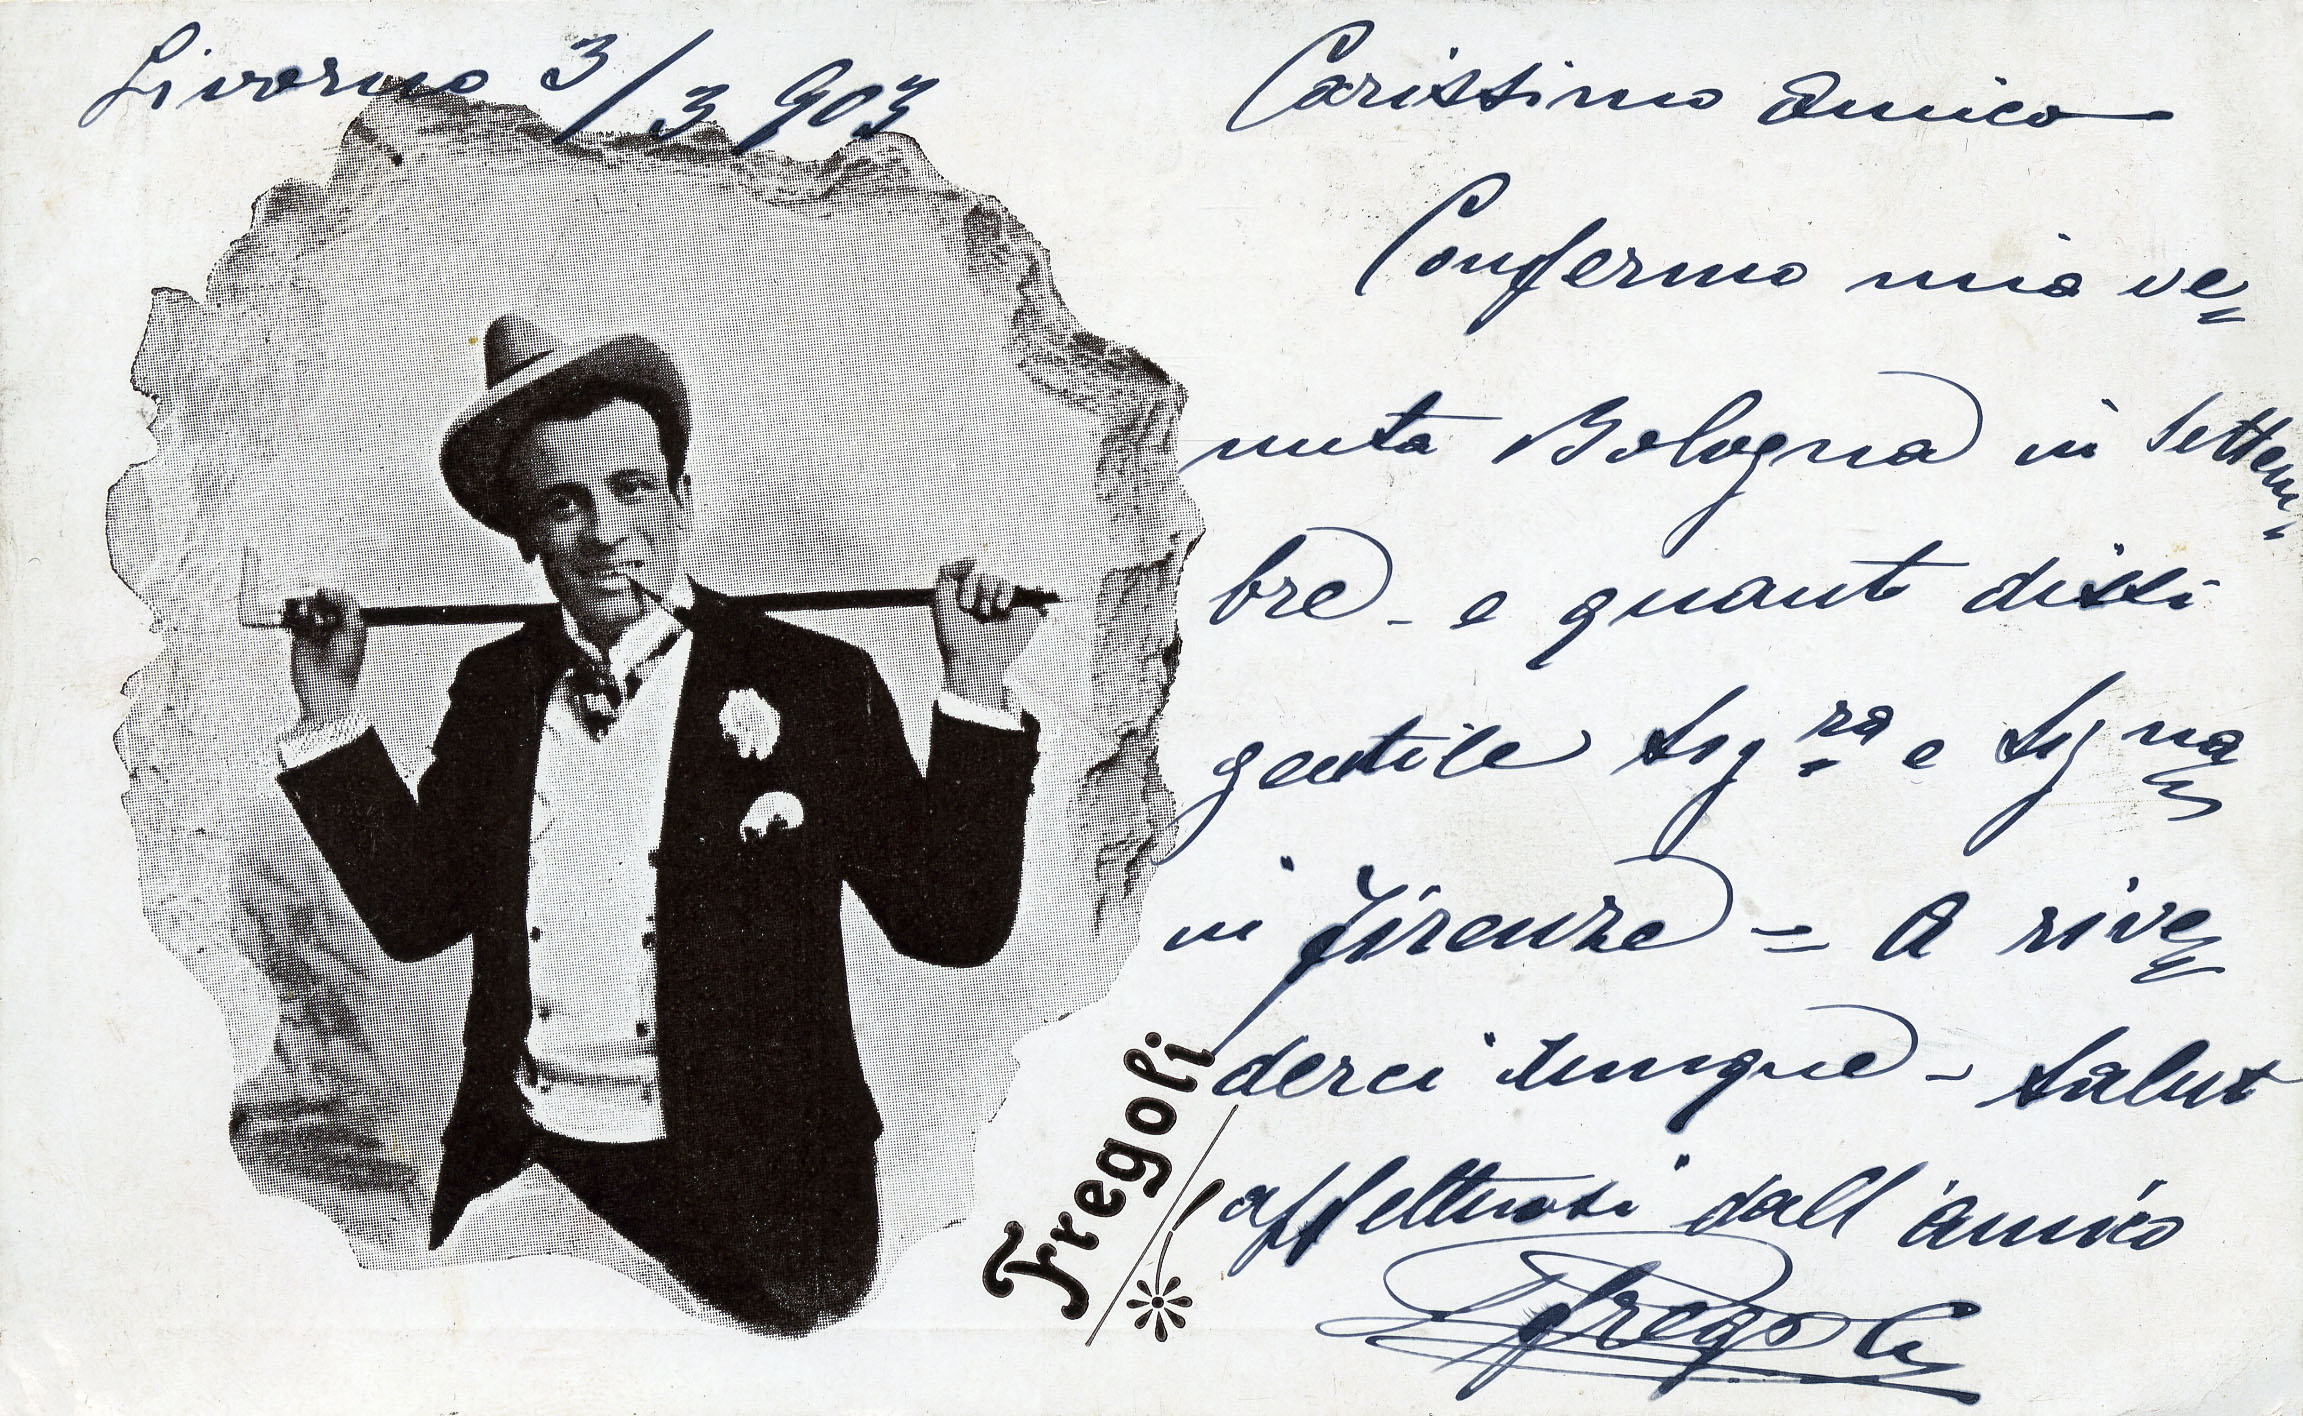 Livorno 3/3 903
Carissimo Amico
Confermo mia ve=
nuta Bologna in settem=
bre - e quanto dissi
gentile Sig.ra e Sig.na
in Firenze = A rive=
derci dunque - saluti
affettuosi dall'amico
Fregoli
Fregoli